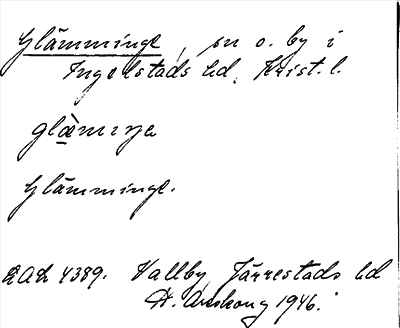 Glämminge, sn o. by i
Ingelstads hd, Krist. l.
glæ̀mıŋe
Glämminge.
LAL 4389. Vallby, Järrestads hd
1946.